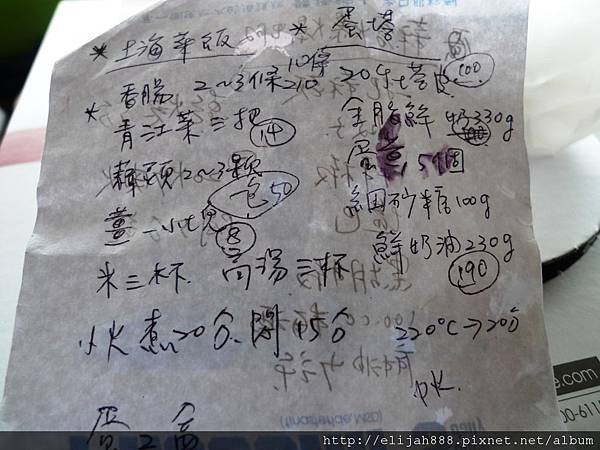 *上海菜飯
香腸 2~3條 10條 210
*青江菜三把 14
蘿頭 2~3顆
一包 50
薑一小塊 8
米三杯 高湯三杯
小火煮20分.悶15分
蛋2盒
*蛋塔
20個塔皮 100
全脂鮮奶330g
蛋黃 5個
細砂糖100g
鮮奶油230g
190
220°C→20分
.com
00-611
http://elijah888.pixnet.net/album